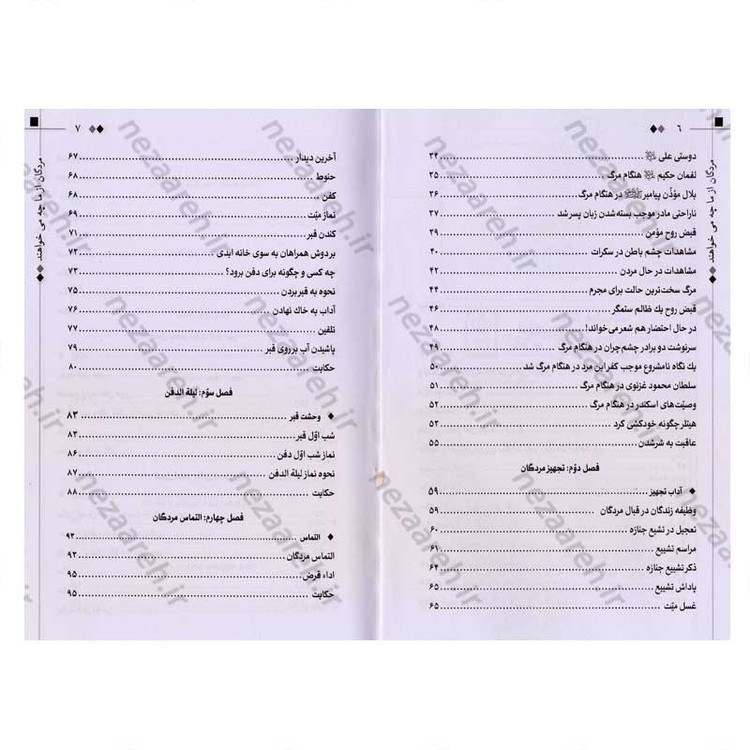 ۶
مردگان از ما چه می خواهند
دوستی علی ﷷ ۳۴
لقمان حکیم ﷷ هنگام مرگ ۳۵
بلال مؤذّن پیامبر ﷺ در هنگام مرگ ۳۶
ناراحتی مادر موجب بسته شدن زبان پسر شد ۳۷
قبض روح مؤمن ۳۹
مشاهدات چشم باطن در سکرات ۴۰
مشاهدات در حال مردن ۴۲
مرگ سخت‌ترین حالت برای مجرم ۴۴
قبض روح یك ظالم ستمگر ۴۶
در حال احتضار هم شعر می‌خواند! ۴۸
سرنوشت دو برادر چشم‌چران در هنگام مرگ ۴۹
یك نگاه نامشروع موجب کفر این مرد در هنگام مرگ شد ۵۰
سلطان محمود غزنوی در هنگام مرگ ۵۱
وصیّت‌های اسکندر در هنگام مرگ ۵۲
هیتلر چگونه خودکشی کرد ۵۳
عاقبت به شر شدن ۵۵
فصل دوّم: تجهیز مردگان
آداب تجهیز ۵۹
وظیفه زندگان در قبال مردگان ۵۹
تعجیل در تشیع جنازه ۶۰
مراسم تشییع ۶۱
ذکر تشییع جنازه ۶۴
پاداش تشییع ۶۵
غسل میّت ۶۵
۷
مردگان از ما چه می خواهند
آخرین دیدار ۶۷
حنوط ۶۸
کفن ۶۸
نماز میّت ۶۹
کندن قبر ۷۱
بر دوش همراهان به سوی خانه ابدی ۷۲
چه کسی و چگونه برای دفن برود؟ ۷۳
نحوه به قبر بردن ۷۵
آداب به خاك نهادن ۷۶
تلقین ۷۷
پاشیدن آب بر روی قبر ۷۹
حکایت ۸۰
فصل سوّم: لیلة الدفن
وحشت قبر ۸۳
شب اوّل قبر ۸۳
نماز شب اوّل دفن ۸۶
نحوه نماز لیلة الدفن ۸۷
حکایت ۸۸
فصل چهارم: التماس مردگان
التماس ۹۳
التماس مردگان ۹۳
اداء قرض ۹۵
حکایت ۹۵
nezaareh.ir